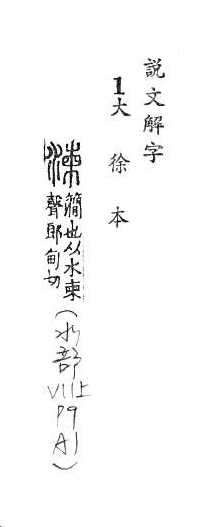 説文解字
1大徐本
湅簡也从水柬
聲郎甸切(水部VII上P9A1)